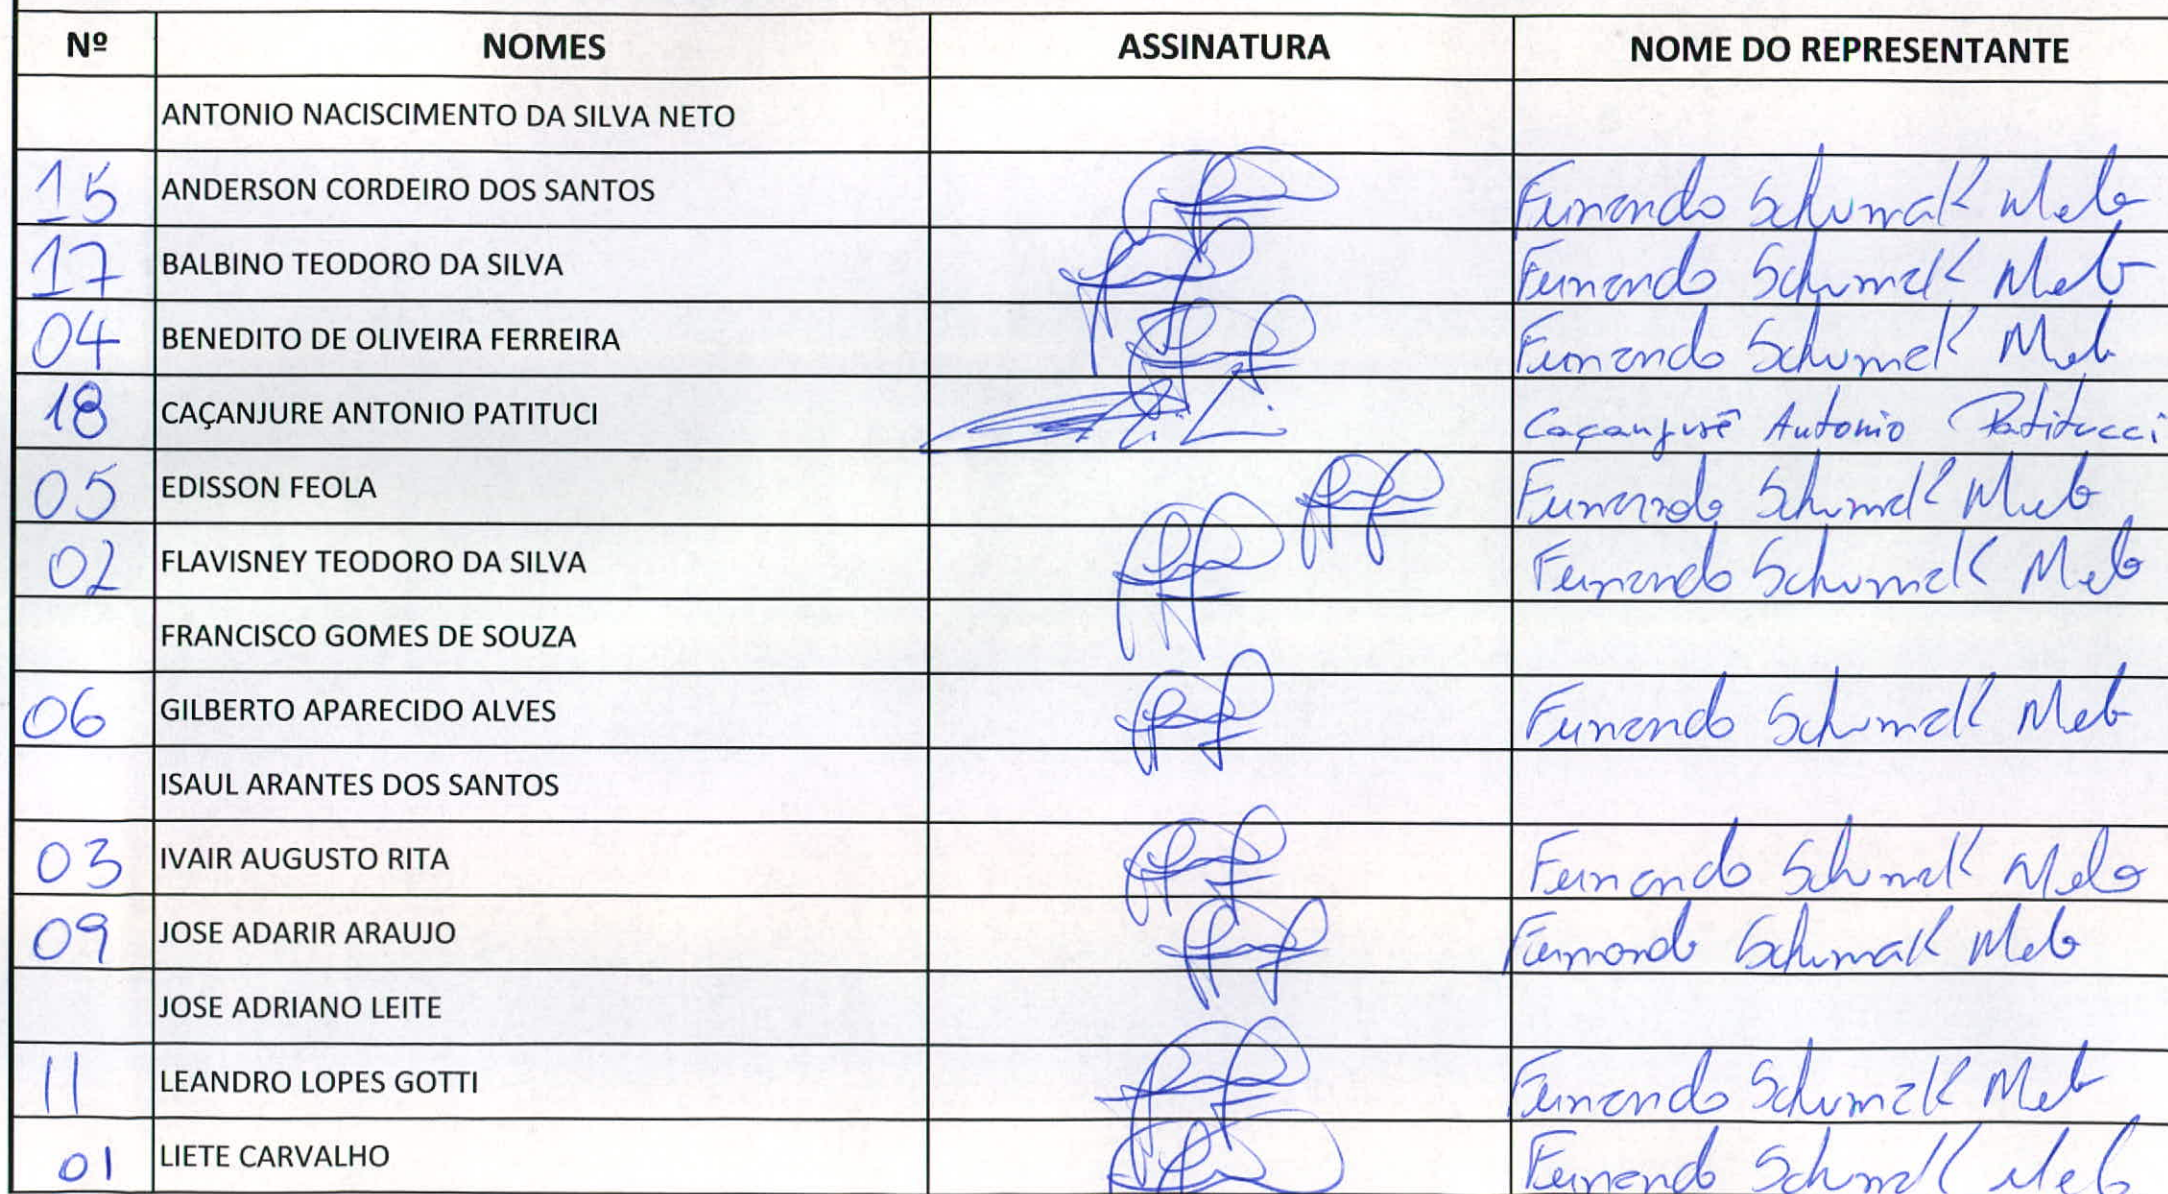 Nº NOMES ASSINATURA NOME DO REPRESENTANTE
ANTONIO NACISCIMENTO DA SILVA NETO
15 ANDERSON CORDEIRO DOS SANTOS Fernando Schumak Melo
17 BALBINO TEODORO DA SILVA Fernando Schumak Melo
04 BENEDITO DE OLIVEIRA FERREIRA Fernando Schumak Melo
18 CAÇANJURE ANTONIO PATITUCI Caçanjurê Antonio Patitucci
05 EDISSON FEOLA Fernando Schumak Melo
02 FLAVISNEY TEODORO DA SILVA Fernando Schumak Melo
FRANCISCO GOMES DE SOUZA
06 GILBERTO APARECIDO ALVES Fernando Schumak Melo
ISAUL ARANTES DOS SANTOS
03 IVAIR AUGUSTO RITA Fernando Schumak Melo
09 JOSE ADARIR ARAUJO Fernando Schumak Melo
JOSE ADRIANO LEITE
11 LEANDRO LOPES GOTTI Fernando Schumak Melo
01 LIETE CARVALHO Fernando Schumak Melo